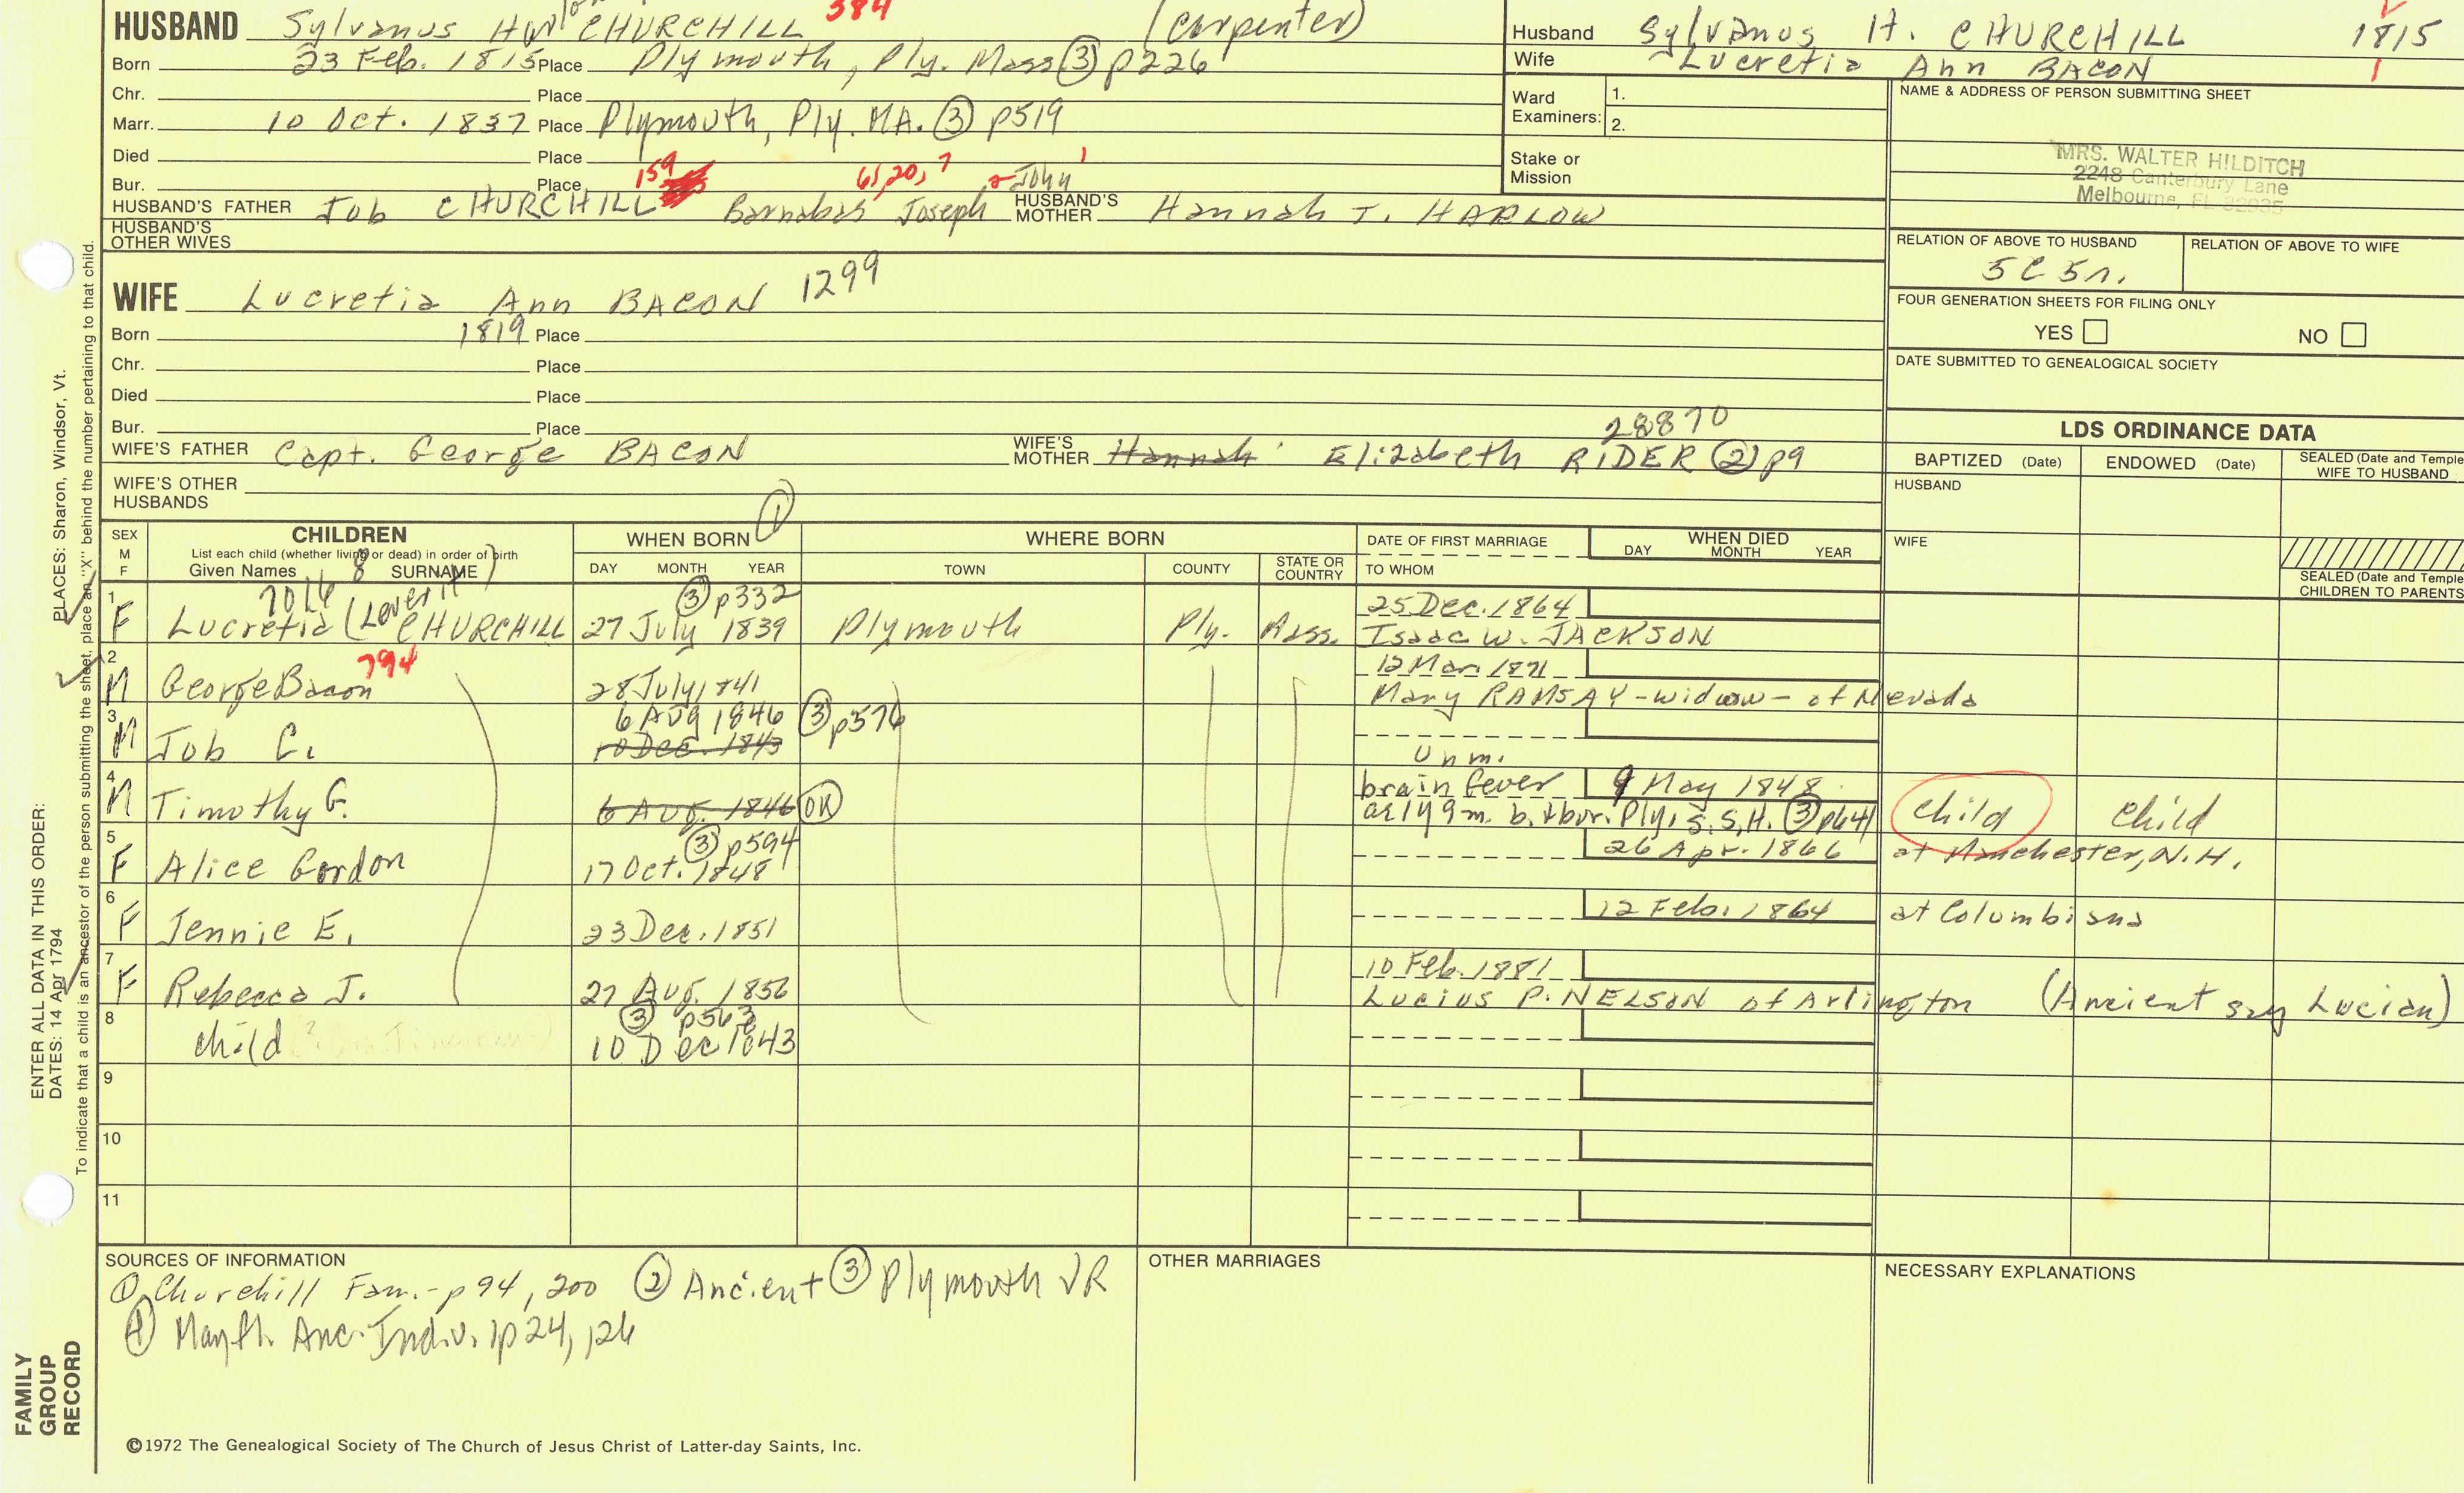 HUSBAND Sylvanus CHURCHILL 384 (carpenter)
Born 23 Feb. 1815 Place Plymouth, Ply. Mass ③ p226
Chr. Place
Marr. 10 Oct. 1837 Place Plymouth, Ply. MA. ③ p519
Died Place
Bur. Place 159 61, 20, 7 2 John 1
HUSBAND'S FATHER Job CHURCHILL Barnabas Joseph HUSBAND'S MOTHER Hannah T. HARLOW
HUSBAND'S OTHER WIVES
Husband Sylvanus H. CHURCHILL 1815
Wife Lucretia Ann BACON 1
Ward Examiners: 1.
2.
Stake or Mission
NAME & ADDRESS OF PERSON SUBMITTING SHEET
MRS. WALTER HILDITCH
2248 Canterbury Lane
Melbourne, FL 32935
RELATION OF ABOVE TO HUSBAND RELATION OF ABOVE TO WIFE
5C5r.
FOUR GENERATION SHEETS FOR FILING ONLY
YES NO
DATE SUBMITTED TO GENEALOGICAL SOCIETY
WIFE Lucretia Ann BACON 1299
Born 1819 Place
Chr. Place
Died Place
Bur. Place 28870
WIFE'S FATHER Capt. George BACON WIFE'S MOTHER Hannah Elizabeth RIDER ② p9
WIFE'S OTHER HUSBANDS
LDS ORDINANCE DATA
BAPTIZED (Date) ENDOWED (Date) SEALED (Date and Temple) WIFE TO HUSBAND
HUSBAND
WIFE
SEALED (Date and Temple) CHILDREN TO PARENTS
SEX M F CHILDREN WHEN BORN ① WHERE BORN DATE OF FIRST MARRIAGE WHEN DIED
List each child (whether living or dead) in order of birth
Given Names 8 SURNAME DAY MONTH YEAR TOWN COUNTY STATE OR COUNTRY TO WHOM DAY MONTH YEAR
③ p332 25 Dec. 1864
1 F Lucretia (Leverit) CHURCHILL 27 July 1839 Plymouth Ply. Mass. Isaac W. JACKSON
794 12 Mar. 1871
2 M George Bacon 28 July 1841 Mary RAMSAY - widow - of Nevada
6 AUG 1846 ③ p576
3 M Job C. 10 Dec. 1843 Unm.
brain fever 9 May 1848
4 M Timothy G. 6 Aug. 1846 OK ae 1y 9m. b. & bur. Ply, S.S.H. ③ p641 child child
③ p594 26 Apr. 1866 at Manchester, N.H.
5 F Alice Gordon 17 Oct. 1848
12 Feb. 1864 at Columbiana
6 F Jennie E. 23 Dec. 1851
10 Feb. 1881
7 F Rebecca J. 27 Aug. 1856 Lucius P. NELSON of Arlington (Ancient say Lucian)
③ p563
8 child 10 Dec 1843
9
10
11
SOURCES OF INFORMATION
① Churchill Fam. - p94, 200 ② Ancient ③ Plymouth VR
④ Mayfl. Anc. Indiv. p24, 126
OTHER MARRIAGES
NECESSARY EXPLANATIONS
©1972 The Genealogical Society of The Church of Jesus Christ of Latter-day Saints, Inc.
FAMILY GROUP RECORD
ENTER ALL DATA IN THIS ORDER:
DATES: 14 Apr 1794 PLACES: Sharon, Windsor, Vt.
To indicate that a child is an ancestor of the person submitting the sheet, place an "X" behind the number pertaining to that child.